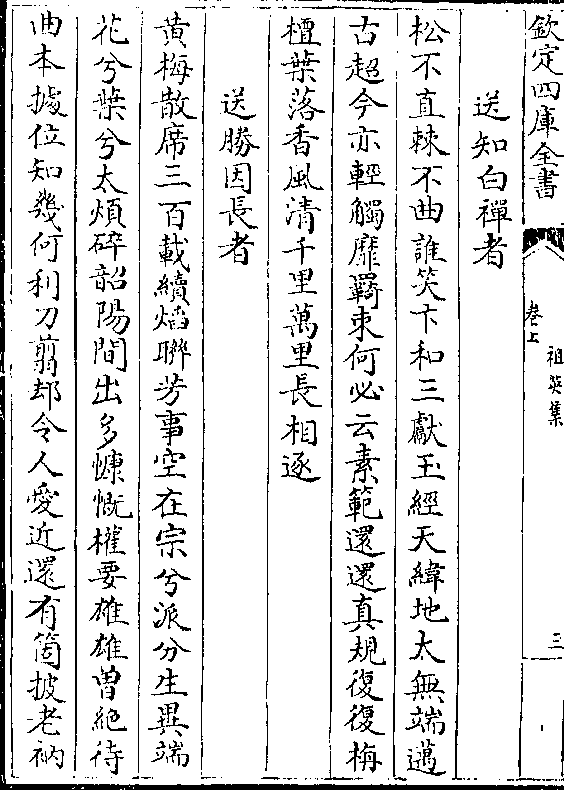 欽定四庫全書
祖英集
卷上
三
送知白禪者
松不直棘不曲誰笑卞和三獻玉經天緯地太無端邁
古超今亦輕觸靡羇束何必云素範還還真規復復栴
檀葉落香風清千里萬里長相逐
送勝因長者
黄梅散席三百載續熖聯芳事空在宗兮派分生異端
花兮葉兮太煩碎韶陽間出多慷慨權要雄雄曽絶待
曲本據位知幾何利刀翦却令人愛近還有箇披老衲